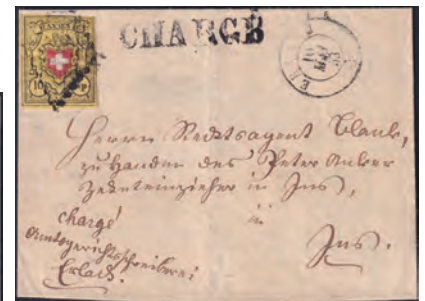 CHARGÉ
10
Herrn Rechtsagent Blank,
zu Handen des Peter Anker
Zehnteinzieher in Ins,
in
Ins.
chargé
Amtsgerichtsschreiberei
Erlach.